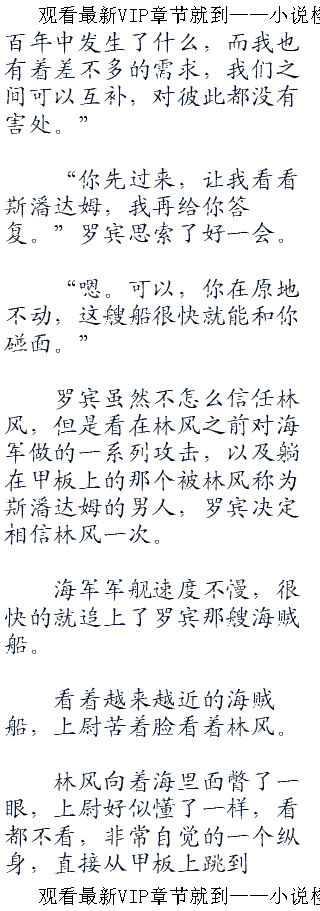 观看最新VIP章节就到——小说检
百年中发生了什么，而我也
有着差不多的需求，我们之
间可以互补，对彼此都没有
害处。”
“你先过来，让我看看
斯潘达姆，我再给你答
复。”罗宾思索了好一会。
“嗯。可以，你在原地
不动，这艘船很快就能和你
碰面。”
罗宾虽然不怎么信任林
风，但是看在林风之前对海
军做的一系列攻击，以及躺
在甲板上的那个被林风称为
斯潘达姆的男人，罗宾决定
相信林风一次。
海军军舰速度不慢，很
快的就追上了罗宾那艘海贼
船。
看着越来越近的海贼
船，上尉苦着脸看着林风。
林风向着海里面瞥了一
眼，上尉好似懂了一样，看
都不看，非常自觉的一个纵
身，直接从甲板上跳到
观看最新VIP章节就到——小说检